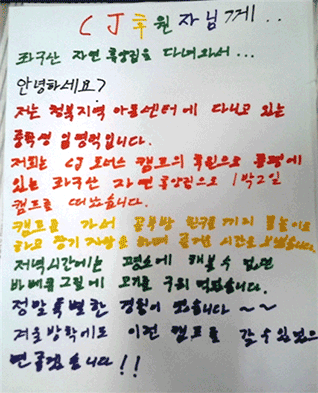 CJ후원자님께..
좌구산 자연 휴양림을 다녀와서...
안녕하세요?
저는 청북지역 아동센터에 다니고 있는
중학생 입니다.
저희는 CJ 도너스 캠프의 후원으로 증평에
있는 좌구산 자연 휴양림으로 1박2일
캠프를 떠났습니다.
캠프를 가서 공부방 친구들끼리 물놀이도
하고 장기자랑을 하며 즐거운 시간을 보냈습니다.
저녁시간에는 평소에 해볼수 없던
바베큐그릴에 고기를 구워 먹었습니다.
정말 특별한 경험이 였습니다 ~~
겨울방학에도 이런 캠프를 갈수있었으
면 좋겠습니다!!